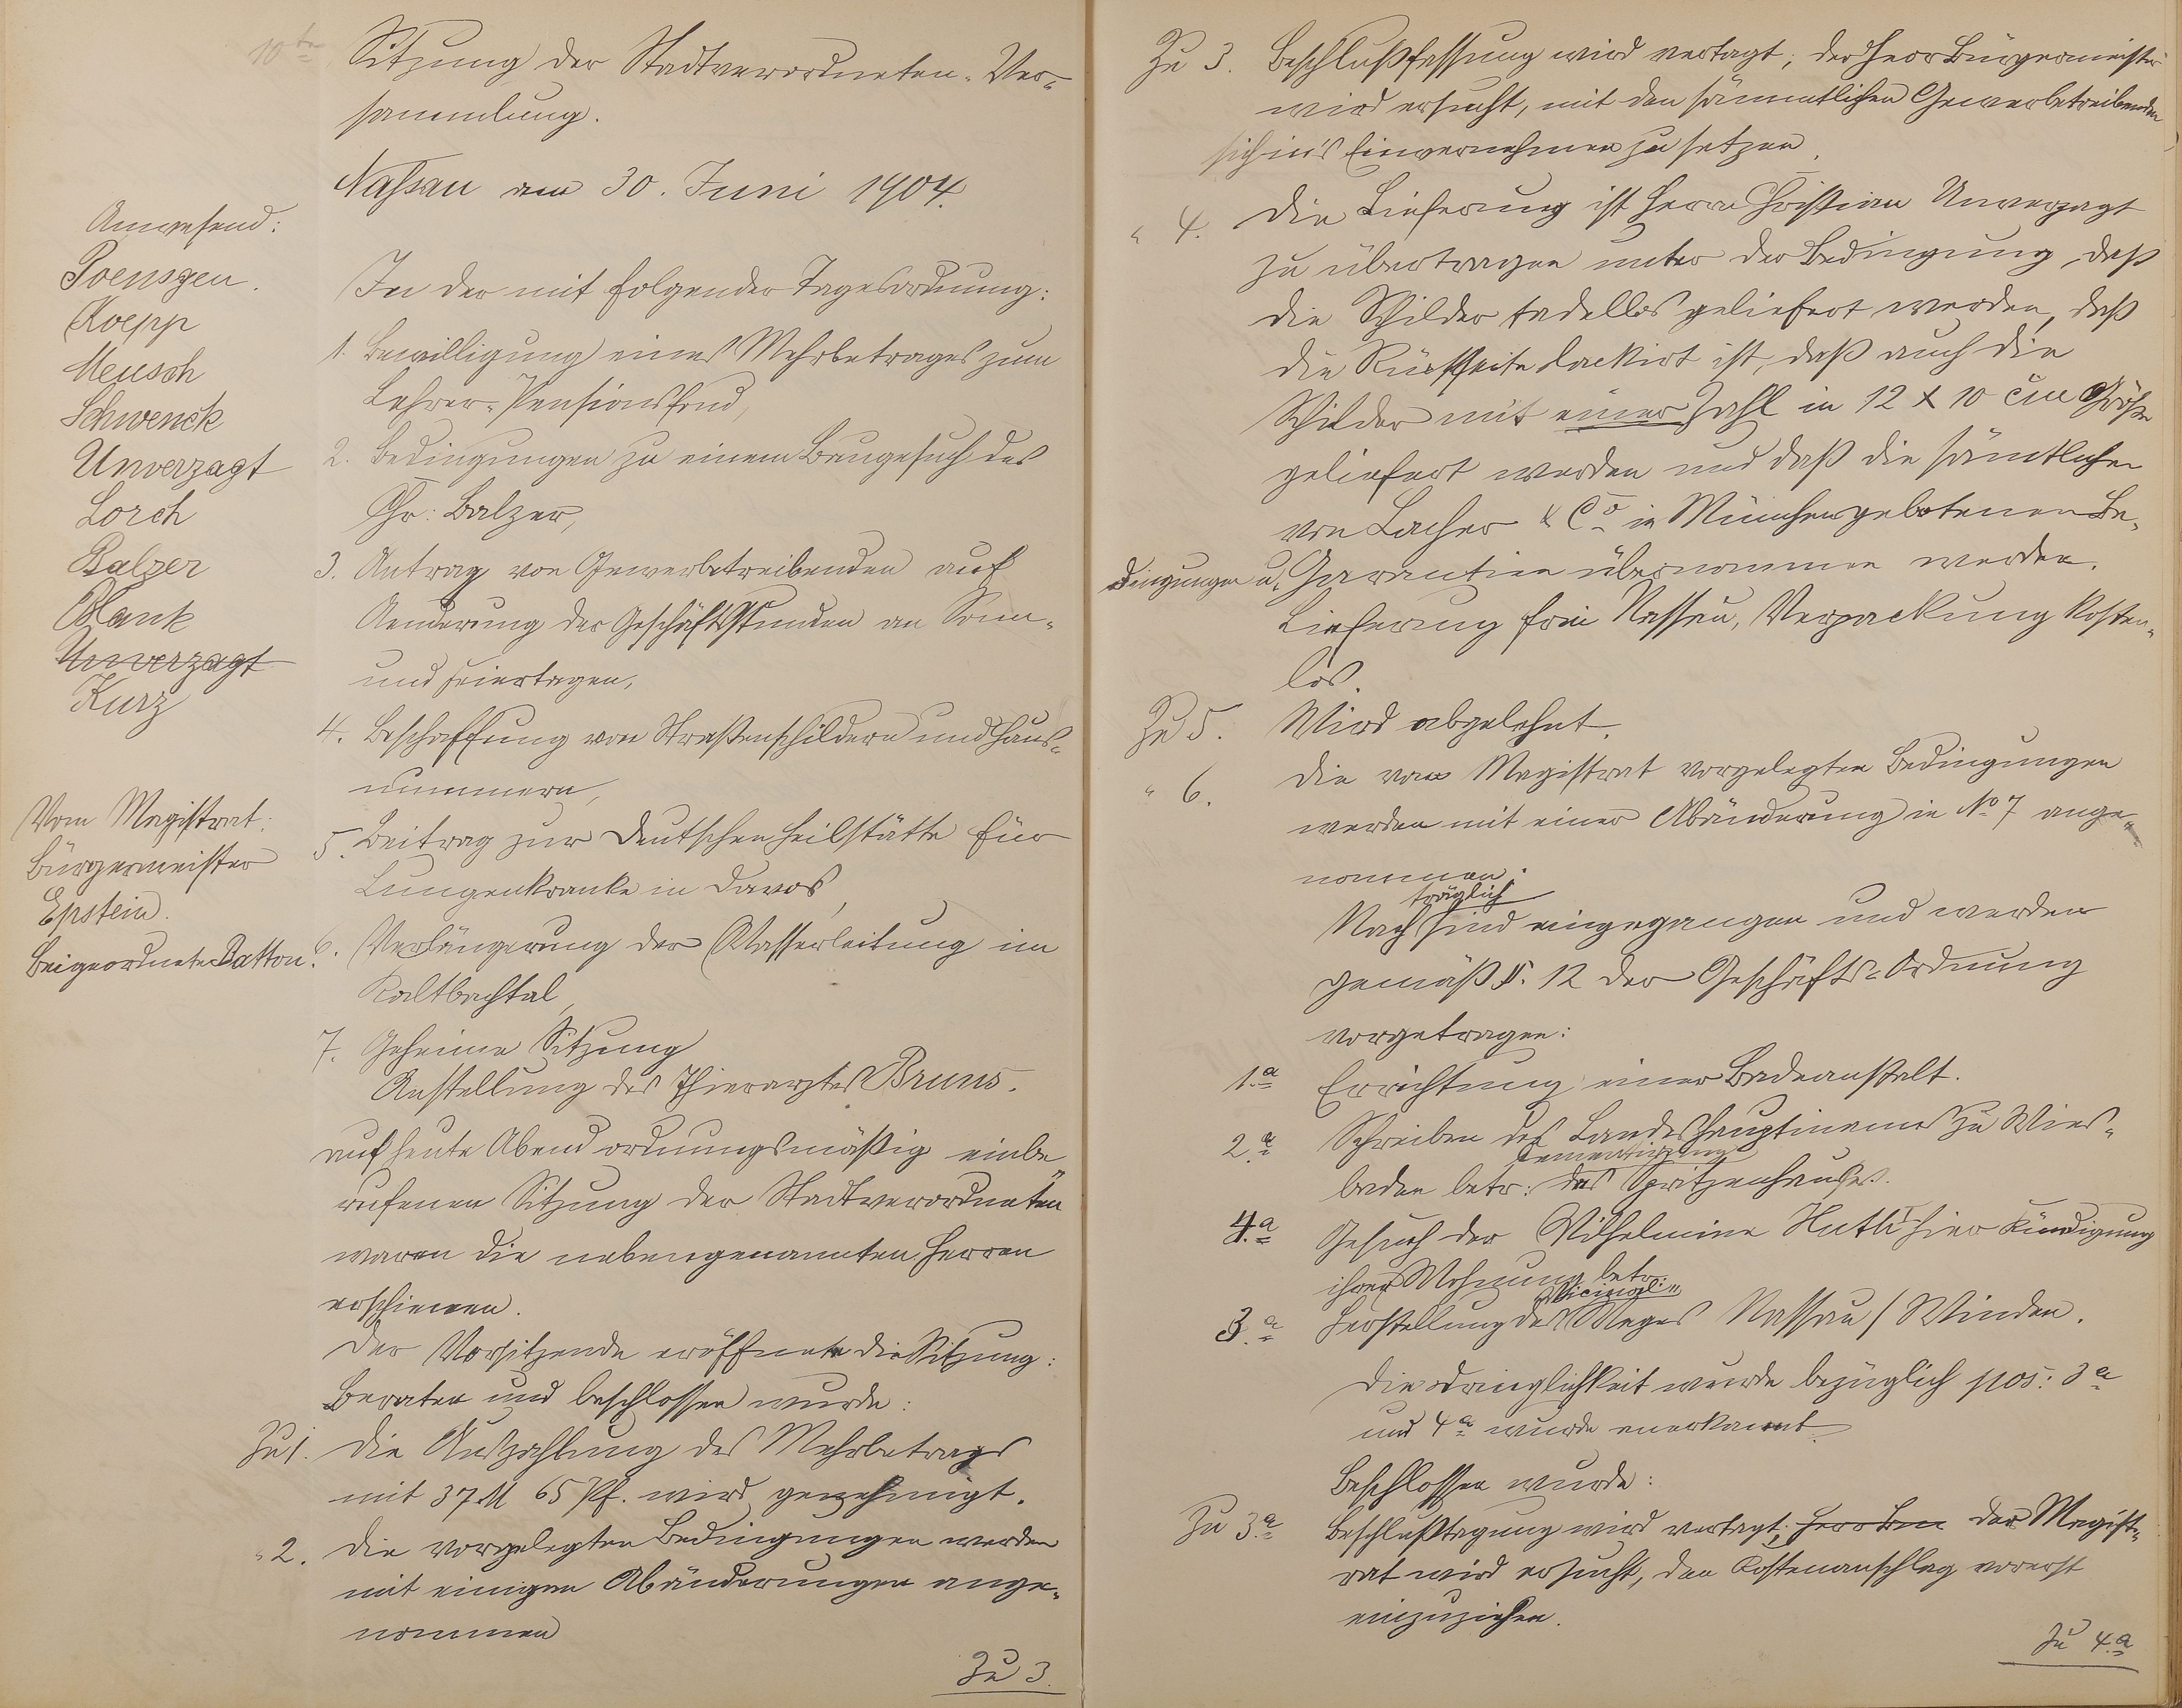 10te Sitzung der Stadtverordneten-Ver-
sammlung.
Nassau am 30. Juni 1904.
Anwesend:
Poensgen.
Koepp
Meusch
Schwenck
Unverzagt
Lorch
Balzer
Blank
Unverzagt
Kurz
Vom Magistrat:
Bürgermeister
Epstein.
Beigeordneter Batton.
In der mit folgender Tagesordnung:
1. Bewilligung eines Mehrbetrages zum
Lehrer-Pensionsfond,
2. Bedingungen zu einem Baugesuch des
Chr: Balzer,
3. Antrag von Gewerbetreibenden auf
Aenderung der Geschäftsstunden an Sonn-
und Feiertagen,
4. Beschaffung von Straßenschildern und Haus-
nummern,
5. Beitrag zur Deutschen Heilstätte für
Lungenkranke in Davos,
6. Verlängerung der Wasserleitung im
Kaltbachtal,
7. Geheime Sitzung
Anstellung des Thierarztes Bruns.
auf heute Abend ordnungsmäßig einbe-
rufenen Sitzung der Stadtverordneten
waren die nebengenannten Herren
erschienen.
Der Vorsitzende eröffnete die Sitzung:
Beraten und beschlossen wurde:
Zu 1. Die Auszahlung des Mehrbetrags
mit 37 M 65 Pf. wird genehmigt.
" 2. Die vorgelegten Bedingungen werden
mit einigen Abänderungen ange-
nommen
Zu 3.
Zu 3. Beschlußfassung wird vertagt; der Herr Bürgermeister
wird ersucht, mit den sämmtlichen Gewerbetreibenden
sich in's Einvernehmen zu setzen.
" 4. Die Lieferung ist Herrn Christian Unverzagt
zu übertragen unter der Bedingung, daß
die Schilder tadellos geliefert werden, daß
die Rückseite lackirt ist, daß auch die
Schilder mit einer Zahl in 12 x 10 cm Größe
geliefert werden und daß die sämtlichen
von Lacher & Co in München gebotenen Be-
dingungen u. Garantien übernommen werden.
Lieferung frei Nassau, Verpackung kosten-
los.
Zu 5. Wird abgelehnt.
" 6. Die vom Magistrat vorgelegten Bedingungen
werden mit einer Abänderung in No 7 ange-
nommen.
träglich
Nach sind eingegangen und werden
gemäß §. 12 der Geschäfts-Ordnung
vorgetragen:
1.a Errichtung einer Badeanstalt.
2.a Schreiben des Landeshauptmanns zu Wies-
baden betr: das Spritzenhauses.
4.a Gesuch der Wilhelmine Huth hier Kündigung
ihrer Wohnung betr:
Vicinal-
3.a Herstellung des Weges Nassau/Winden.
Die Dringlichkeit wurde bezüglich pos: 3a
und 4a wurde anerkannt.
Beschlossen wurde:
Zu 3.a Beschlußtagung wird vertagt; Herr Bm der Magist-
rat wird ersucht, den Kostenanschlag vorerst
einzuziehen.
Zu 4.a